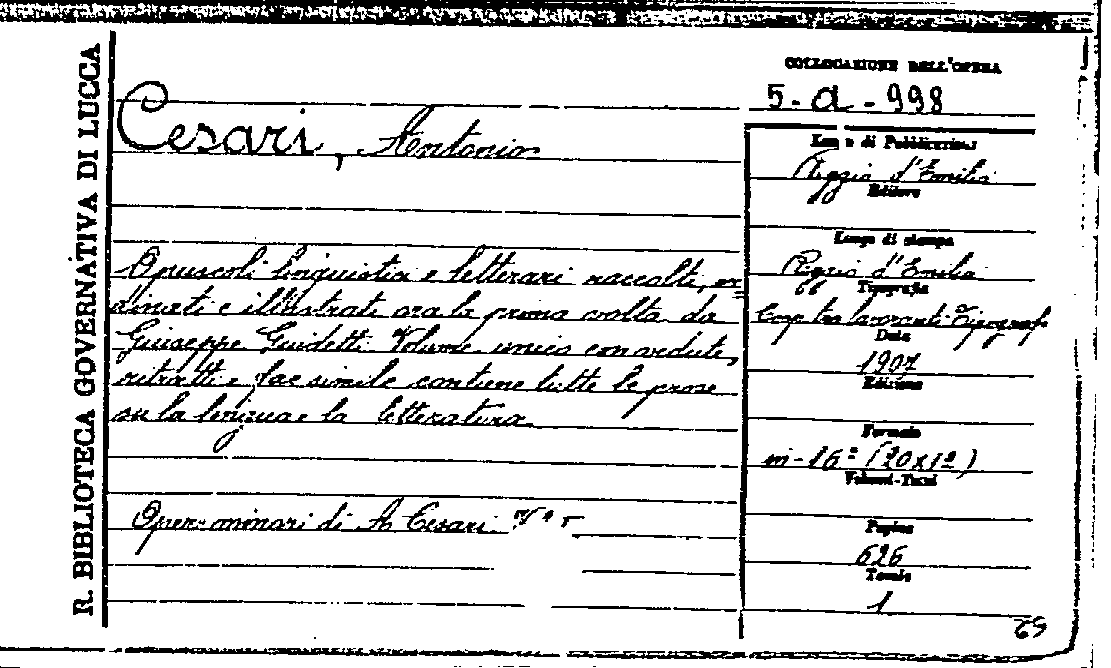 R. BIBLIOTECA GOVERNATIVA DI LUCCA
COLLOCAZIONE DELL'OPERA
5-a-998
Cesari, Antonio
Opuscoli linguistici e letterari raccolti, or=
dinati e illustrati ora la prima volta da
Giuseppe Guidetti. Volume unico con vedute,
ritratti e facsimile contiene tutte le prose
su la lingua e la letteratura.
Opere minori di A. Cesari
Luogo di Pubblicazione
Reggio d'Emilia
Editore
Luogo di stampa
Reggio d'Emilia
Tipografia
Coop. tra lavoranti-Tipografi
Data
1907
Edizione
Formato
in-16º (20x12)
Volumi-Tomi
Pagine
626
Tavole
1
69